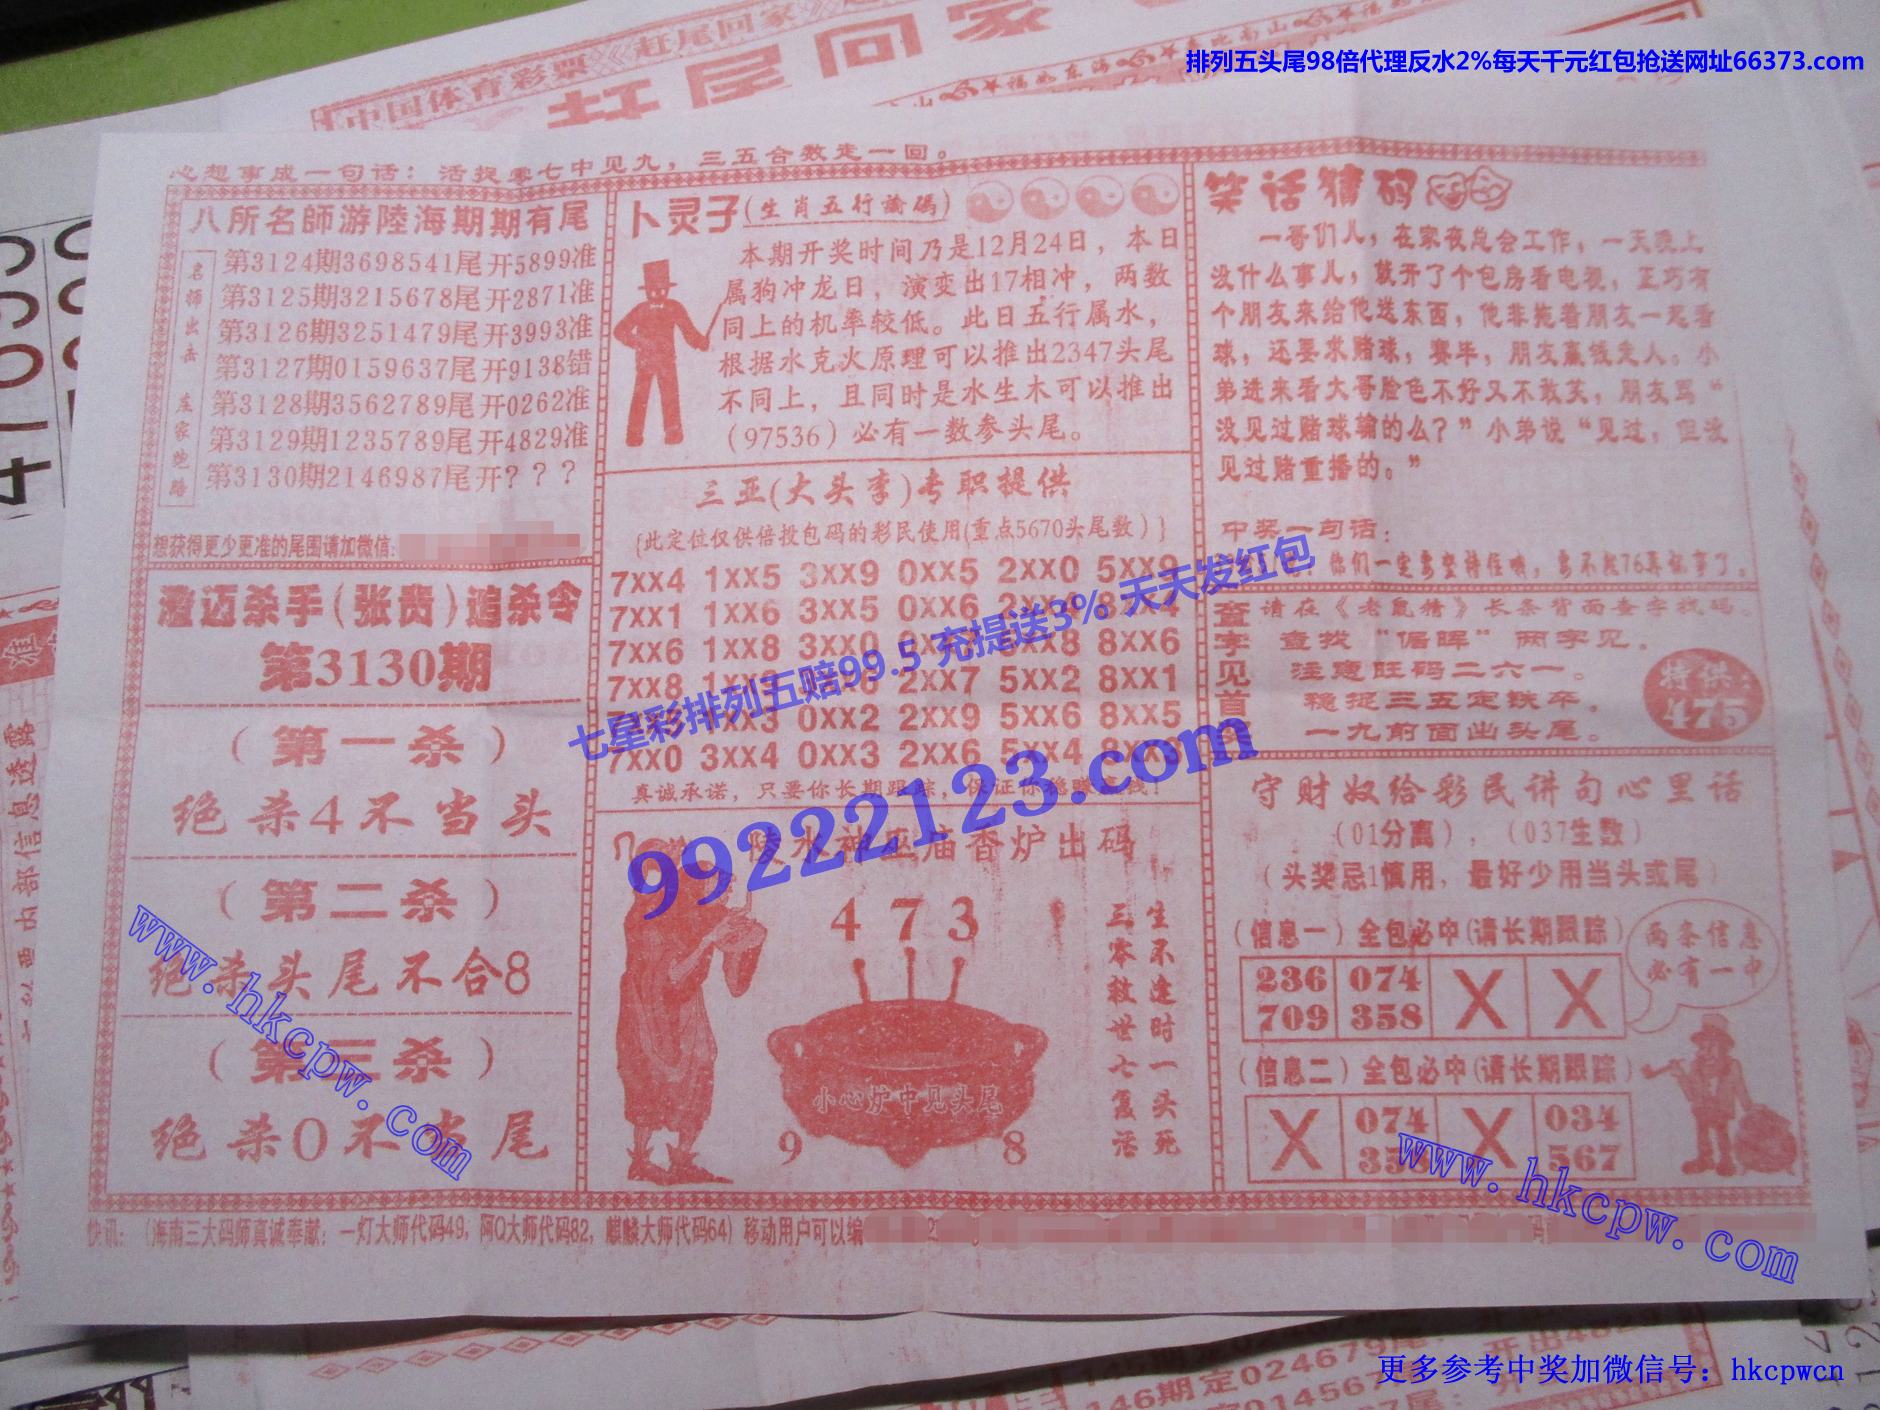 排列五头尾98倍代理反水2%每天千元红包抢送网址66373.com
中国体育彩票
赶尾回家
赶尾回家
心想事成一句话：活捉零七中见九，三五合数走一回。
八所名師游陸海期期有尾
名师出击 庄家跑路
第3124期3698541尾开5899准
第3125期3215678尾开2871准
第3126期3251479尾开3993准
第3127期0159637尾开9138错
第3128期3562789尾开0262准
第3129期1235789尾开4829准
第3130期2146987尾开？？？
想获得更少更准的尾围请加微信:
澄迈杀手(张贵)追杀令
第3130期
（第一杀）
绝杀4不当头
（第二杀）
绝杀头尾不合8
（第三杀）
绝杀0不当尾
卜灵子(生肖五行谕码)
本期开奖时间乃是12月24日，本日
属狗冲龙日，演变出17相冲，两数
同上的机率较低。此日五行属水，
根据水克火原理可以推出2347头尾
不同上，且同时是水生木可以推出
（97536）必有一数参头尾。
三亚(大头李)专职提供
{此定位仅供倍投包码的彩民使用(重点5670头尾数）}
7XX4 1XX5 3XX9 0XX5 2XX0 5XX9
7XX1 1XX6 3XX5 0XX6 2XX4 8XX4
7XX6 1XX8 3XX0 5XX8 8XX6
7XX8 2XX7 5XX2 8XX1
0XX2 2XX9 5XX6 8XX5
7XX0 3XX4 0XX3 2XX6 5XX4 8XX3
真诚承诺，只要你长期跟踪，保证你稳赚
七星彩排列五赔99.5 充提送3% 天天发红包
99222123.com
陵水神巫庙香炉出码
4 7 3
生不逢时一头死
三零救世七复活
小心炉中见头尾
9 8
笑话猜码
一哥们儿，在家夜总会工作，一天晚上
没什么事儿，就开了个包房看电视，正巧有
个朋友来给他送东西，他非拖着朋友一起看
球，还要求赌球，赛毕，朋友赢钱走人。小
弟进来看大哥脸色不好又不敢笑，朋友骂“
没见过赌球输的么？”小弟说“见过，但没
见过赌重播的。”
中奖一句话：
你们一定要坚持住哦，要不然76再犯事了。
查字见首
请在《老鼠精》长条背面查字找码
查找“倔晖”两字见。
注意旺码二六一。
稳捉三五定铁卒。
一九前面出头尾。
特供：
475
守财奴给彩民讲句心里话
（01分离），（037生数）
（头奖忌1慎用，最好少用当头或尾）
（信息一）全包必中(请长期跟踪)
236 074 X X
709 358
两条信息
必有一中
（信息二）全包必中(请长期跟踪)
X 074 X 034
358 567
快讯：（海南三大码师真诚奉献：一灯大师代码49，阿Q大师代码82，麒麟大师代码64）移动用户可以编
www.hkcpw.com
www.hkcpw.com
内部信息透露
更多参考中奖加微信号：hkcpwcn